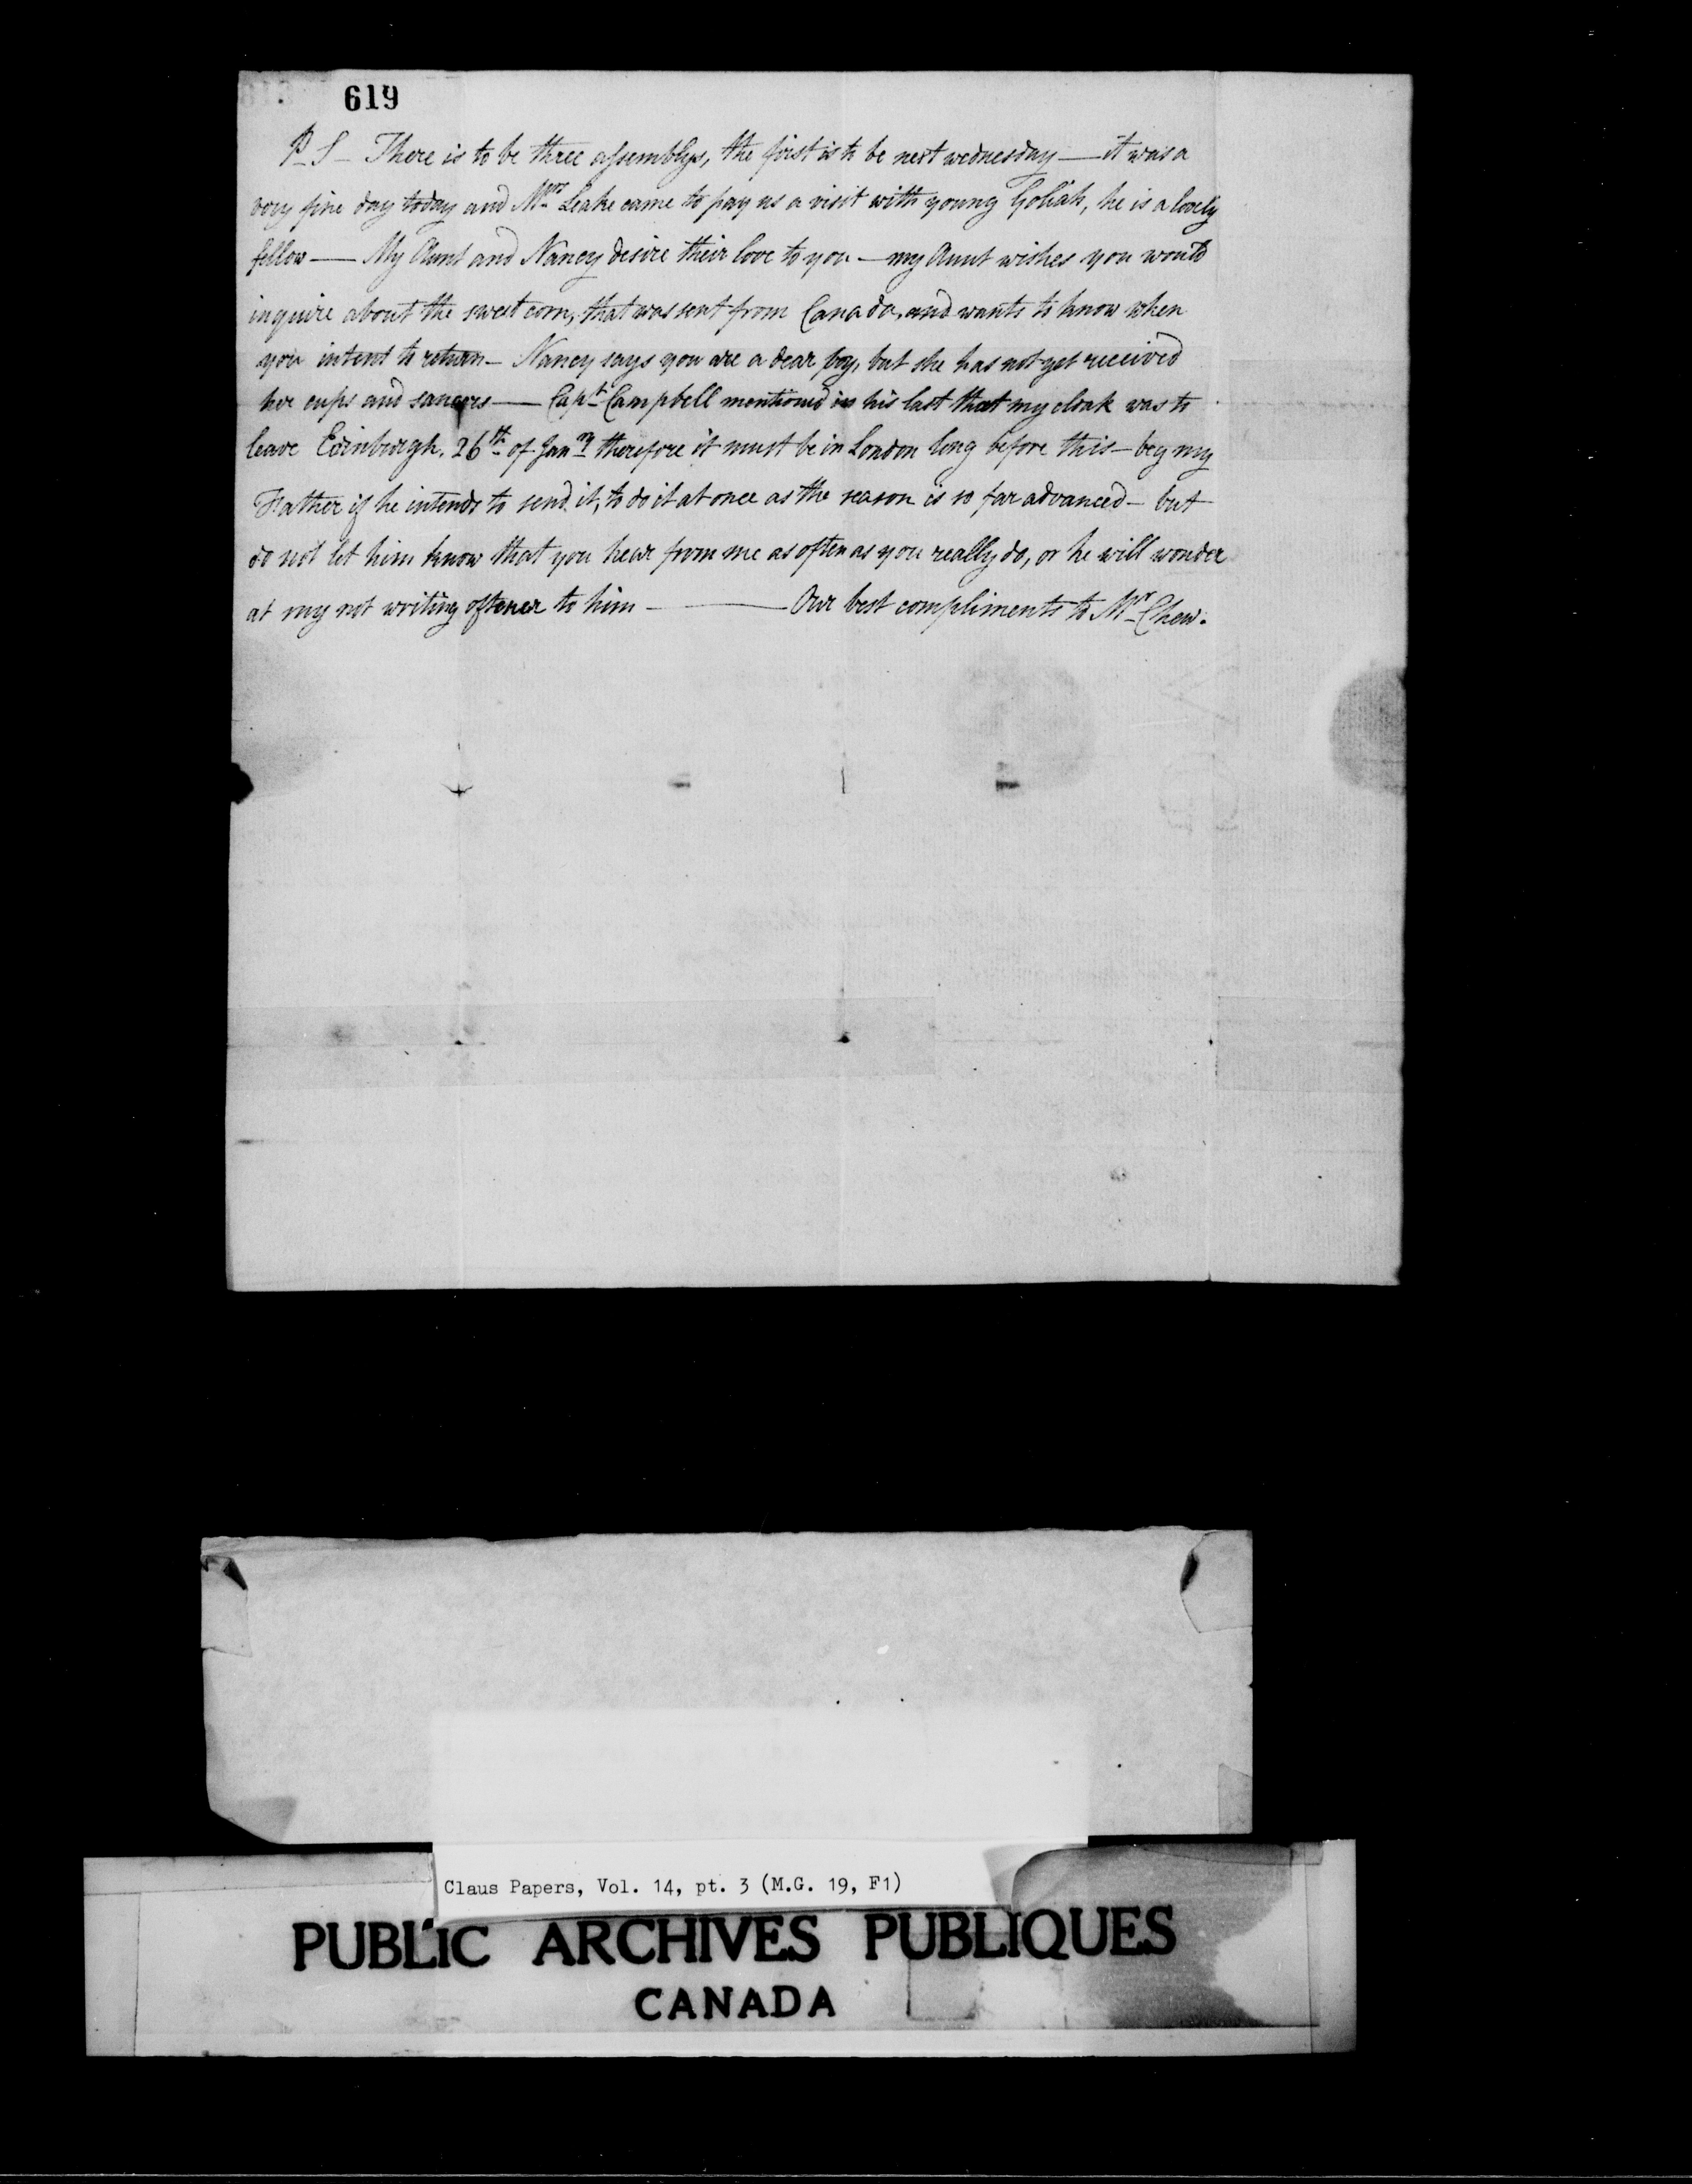 619
P S - There is to be three assemblys, the first is to be next wednesday — it was a
very fine day today and Mrs Leake came to pay us a visit with young Goliah, he is a lovely
fellow — My Aunt and Nancy desire their love to you — my Aunt wishes you would
inquire about the sweet corn, that was sent from Canada, and wants to know when
you intend to return — Nancy says you are a dear boy, but she has not yet received
her cups and saucers — Capt Campbell mentioned in his last that my cloak was to
leave Edinburgh. 26th of Janry therefore it must be in London long before this — beg my
Father if he intends to send it, to do it at once as the season is so far advanced — but
do not let him know that you hear from me as often as you really do, or he will wonder
at my not writing oftener to him — Our best compliments to Mr Chew.
Claus Papers, Vol. 14, pt. 3 (M.G. 19, F1)
PUBLIC ARCHIVES PUBLIQUES
CANADA